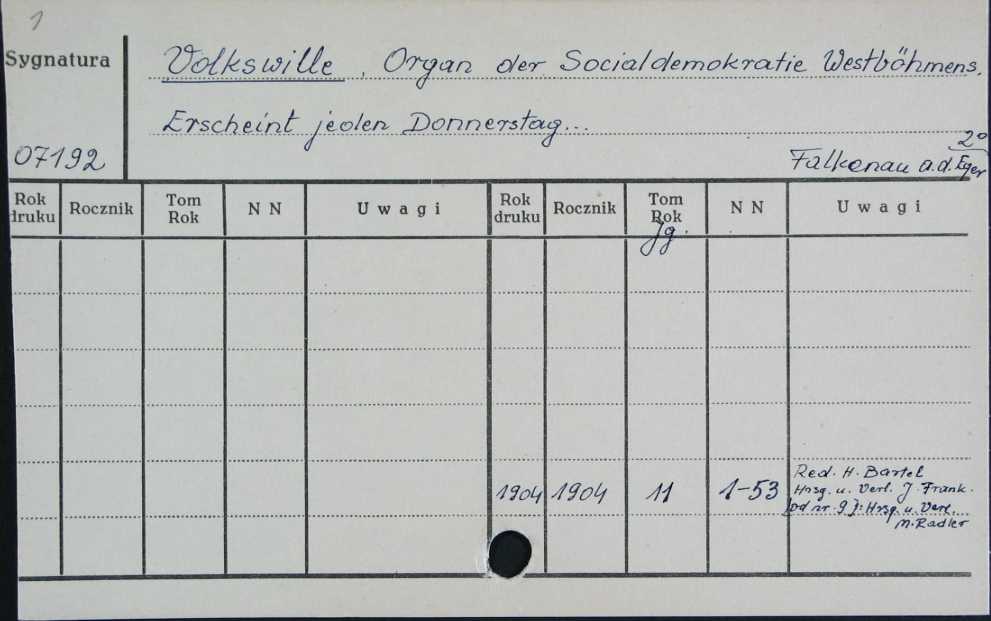 1
Sygnatura
Volkswille, Organ der Socialdemokratie Westböhmens.
Erscheint jeden Donnerstag...
2°
07192
Falkenau a.d. Eger
Rok druku Rocznik Tom Rok N N Uwagi Rok druku Rocznik Tom Rok N N Uwagi
Jg.
Red. H. Bartel
1904 1904 11 1-53 Hrsg. u. Verl. J. Frank.
[od nr. 9]: Hrsg. u. Verl.
M. Radler